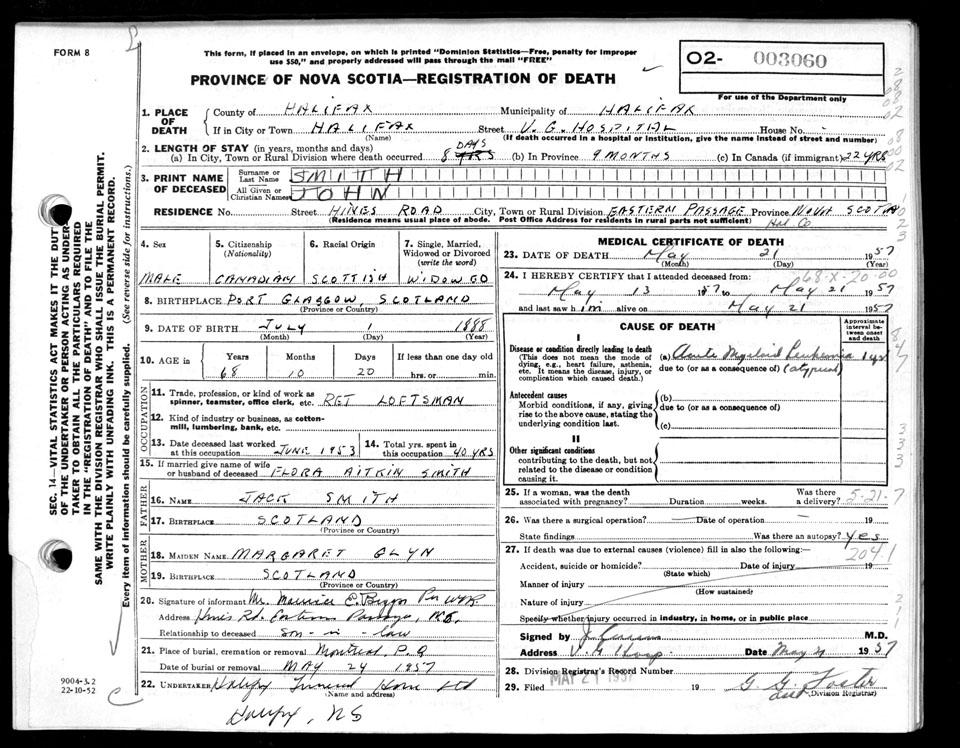 FORM 8
This form, if placed in an envelope, on which is printed "Dominion Statistics—Free, penalty for improper
use $50," and properly addressed will pass through the mail "FREE"
PROVINCE OF NOVA SCOTIA—REGISTRATION OF DEATH
O2- 003060
For use of the Department only
SEC. 14—VITAL STATISTICS ACT MAKES IT THE DUTY
OF THE UNDERTAKER OR PERSON ACTING AS UNDER-
TAKER TO OBTAIN ALL THE PARTICULARS REQUIRED
IN THE "REGISTRATION OF DEATH" AND TO FILE THE
SAME WITH THE DIVISION REGISTRAR WHO SHALL ISSUE THE BURIAL PERMIT.
WRITE PLAINLY WITH UNFADING INK. THIS IS A PERMANENT RECORD.
Every item of information should be carefully supplied. (See reverse side for instructions.)
1. PLACE OF DEATH
County of HALIFAX Municipality of HALIFAX
If in City or Town HALIFAX Street V. G. HOSPITAL House No. -
(Name) (If death occurred in a hospital or institution, give the name instead of street and number)
2. LENGTH OF STAY (in years, months and days)
(a) In City, Town or Rural Division where death occurred 8 YRS DAYS (b) In Province 9 MONTHS (c) In Canada (if immigrant) 22 YRS
3. PRINT NAME OF DECEASED
Surname or Last Name SMITH
All Given or Christian Names JOHN
RESIDENCE No. Street HINES ROAD City, Town or Rural Division EASTERN PASSAGE Province NOVA SCOTIA
(Residence means usual place of abode. Post Office Address for residents in rural parts not sufficient) Hal. Co
4. Sex MALE
5. Citizenship (Nationality) CANADIAN
6. Racial Origin SCOTTISH
7. Single, Married, Widowed or Divorced (write the word) WIDOWED
8. BIRTHPLACE PORT GLASGOW, SCOTLAND
(Province or Country)
9. DATE OF BIRTH JULY 1 1888
(Month) (Day) (Year)
10. AGE IN Years 68 Months 10 Days 20 If less than one day old hrs. or min.
OCCUPATION
11. Trade, profession, or kind of work as spinner, teamster, office clerk, etc. RET LOFTSMAN
12. Kind of industry or business, as cotton-mill, lumbering, bank, etc.
13. Date deceased last worked at this occupation JUNE 1953
14. Total yrs. spent in this occupation 40 YRS
15. If married give name of wife or husband of deceased FLORA AITKIN SMITH
FATHER
16. NAME JACK SMITH
17. BIRTHPLACE SCOTLAND
(Province or Country)
MOTHER
18. MAIDEN NAME MARGARET GLYN
19. BIRTHPLACE SCOTLAND
(Province or Country)
20. Signature of informant Mr. Maurice E.
Address Hines Rd. Eastern Passage, N.S.
Relationship to deceased son-in-law
21. Place of burial, cremation or removal Montreal, P.Q
Date of burial or removal MAY 24 1957
22. UNDERTAKER Halifax Funeral Home Ltd
(Name and address)
Halifax, NS
9004-3.2
22-10-52
C
MEDICAL CERTIFICATE OF DEATH
23. DATE OF DEATH May 21 1957
(Month) (Day) (Year)
68-X-20-00
24. I HEREBY CERTIFY that I attended deceased from:
May 13 1957 to May 21 1957
and last saw him alive on May 21 1957
CAUSE OF DEATH
Approximate interval between onset and death
I
Disease or condition directly leading to death
(This does not mean the mode of dying, e.g., heart failure, asthenia, etc. It means the disease, injury, or complication which caused death.)
(a) Acute Myeloid Leukemia 1 yr
due to (or as a consequence of) (atypical)
Antecedent causes
Morbid conditions, if any, giving rise to the above cause, stating the underlying condition last.
(b)
due to (or as a consequence of)
(c)
II
Other significant conditions
contributing to the death, but not related to the disease or condition causing it.
25. If a woman, was the death associated with pregnancy? Duration weeks. Was there a delivery?
5-21-7
26. Was there a surgical operation? — Date of operation — 19
State findings Was there an autopsy? yes
27. If death was due to external causes (violence) fill in also the following:—
2041
Accident, suicide or homicide? Date of injury 19
(State which)
Manner of injury
(How sustained)
Nature of injury
Specify whether injury occurred in industry, in home, or in public place
Signed by M.D.
Address V. G. Hosp. Date May 21 1957
28. Division Registrar's Record Number
29. Filed MAY 21 1957 19 G. G. Foster
(Division Registrar)